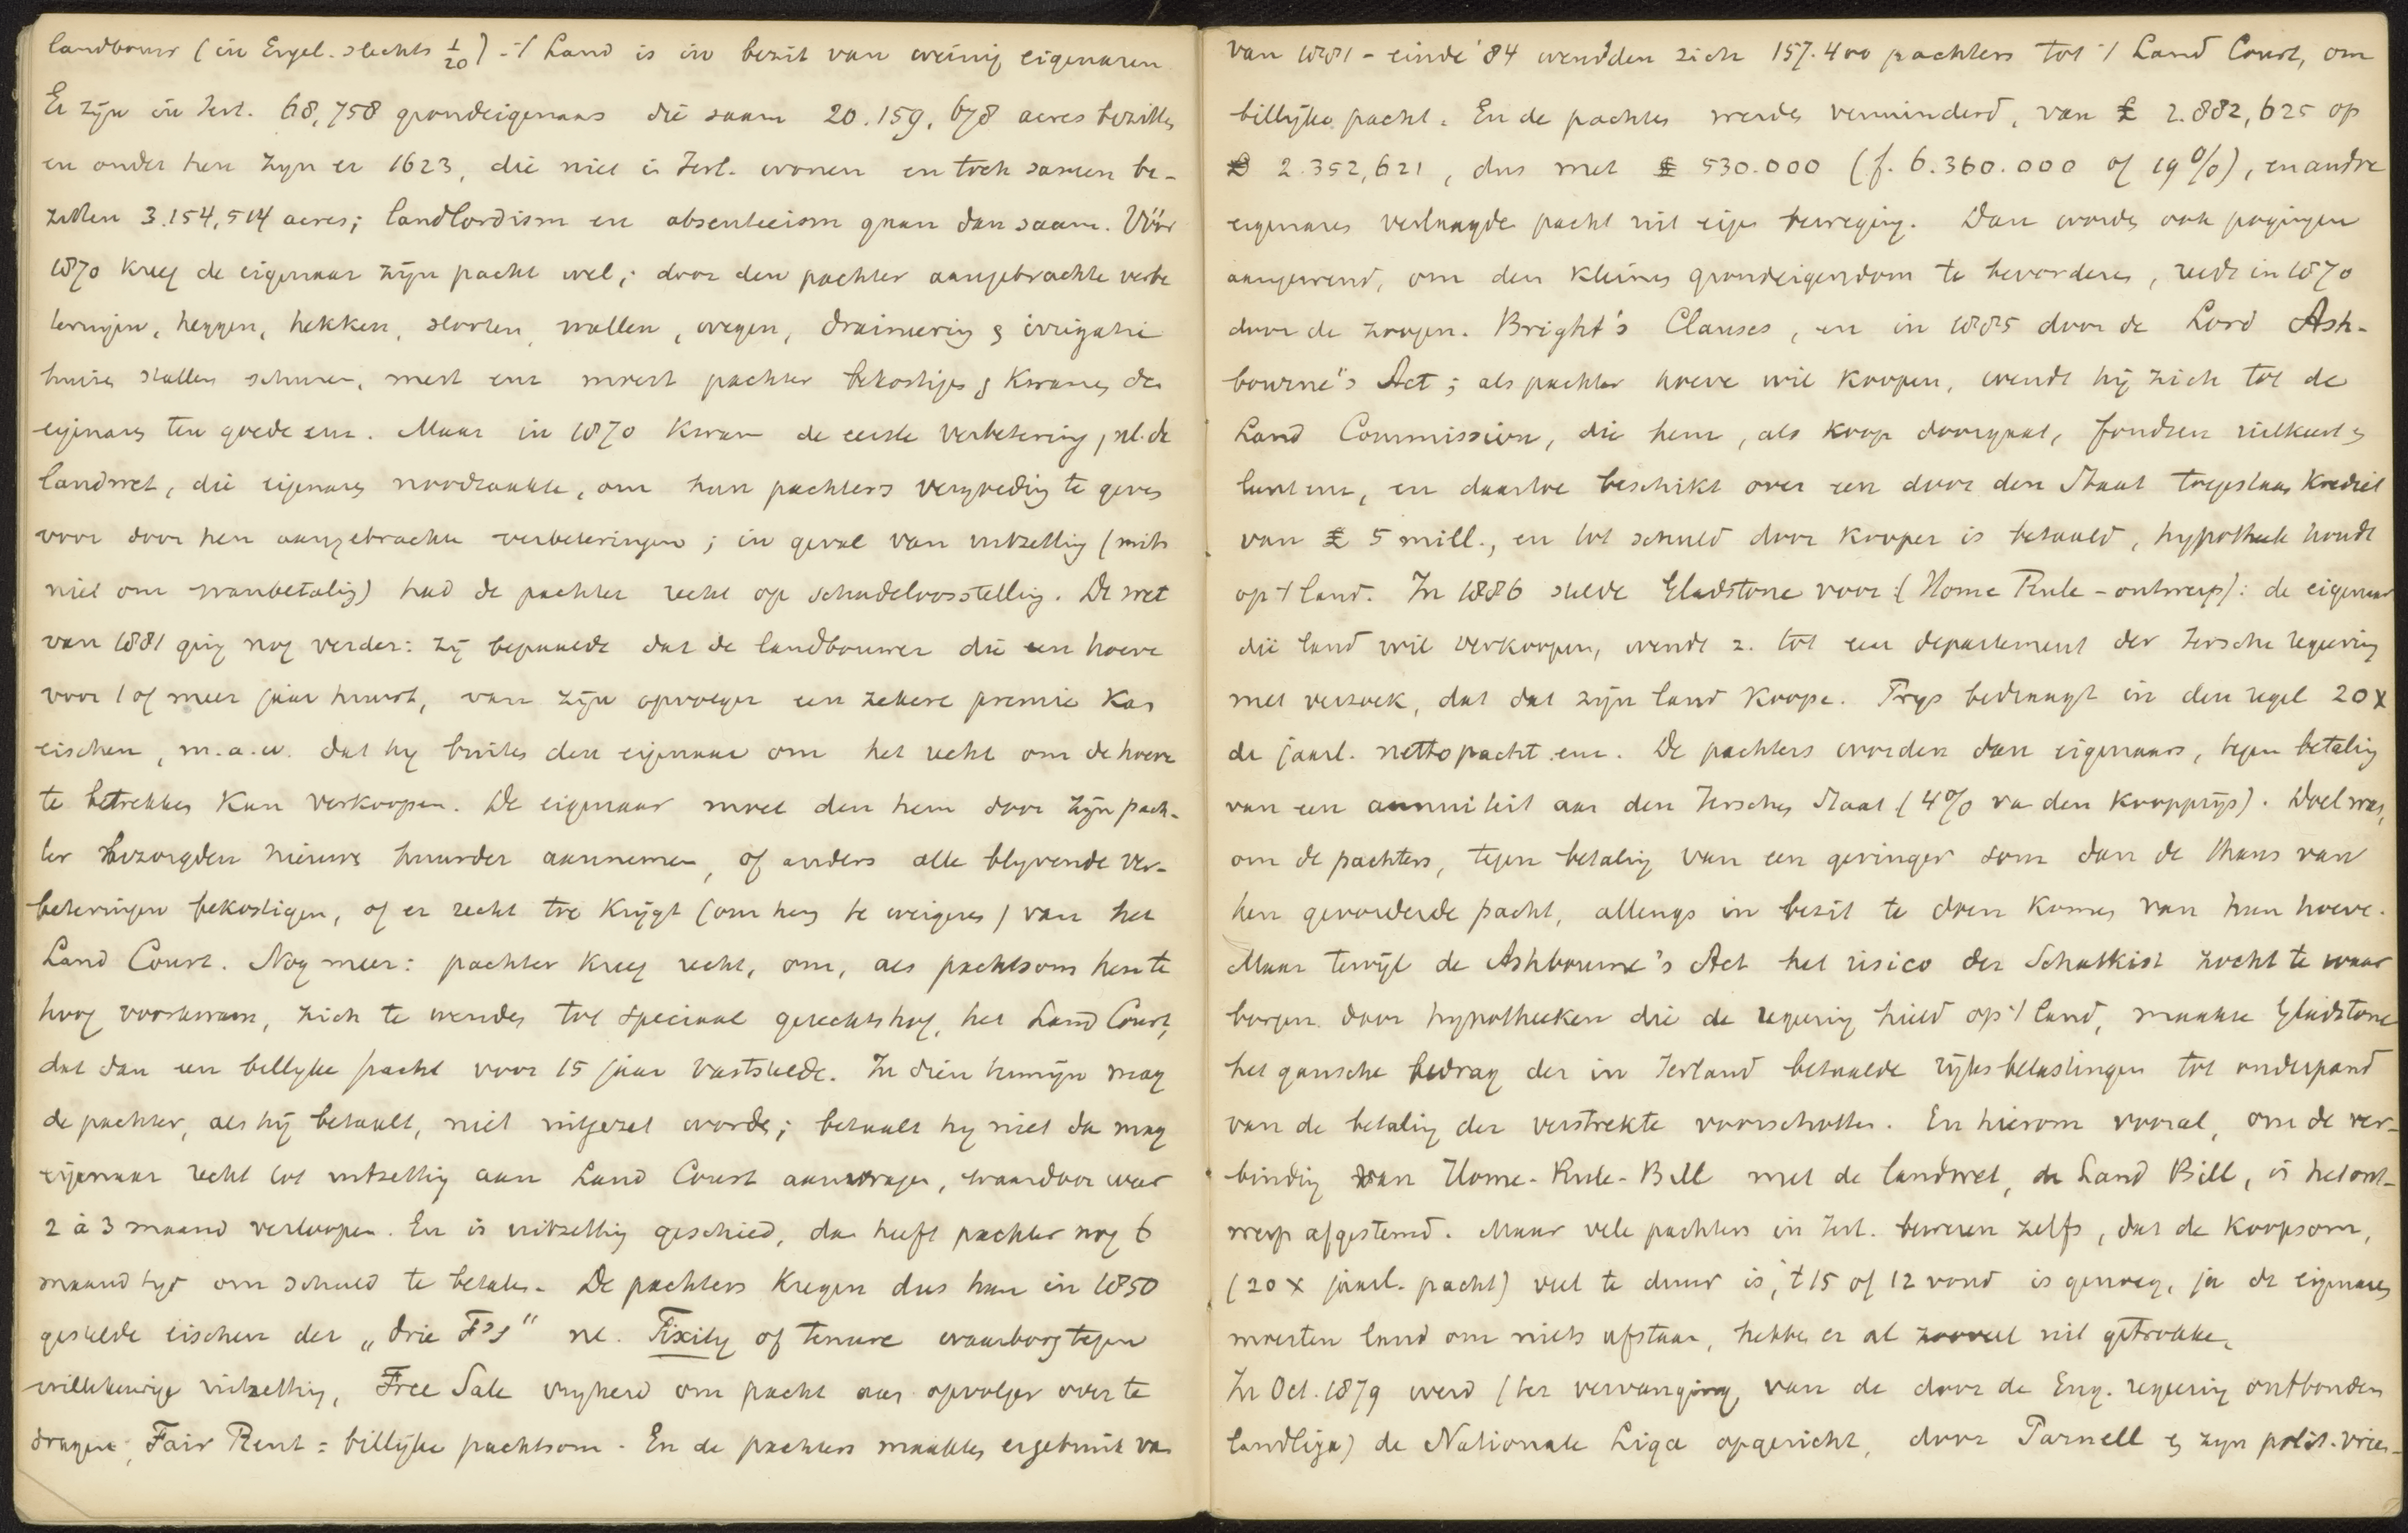 landbouw (in Engel. slechts 1/20) - 't Land is in bezit van weinig eigenaren.
Er zijn in Ierl. 68,758 grondeigenaars die saam 20.159.678 acres bezitten,
en onder hen zyn er 1623, die niet in Ierl. wonen en toch samen be-
zitten 3.154,514 acres; landlordism en absenteeism gaan dan saam. Vóór
1870 kreeg de eigenaar zijn pacht wel; door den pachter aangebrachte verbe
teringen, heggen, hekken, slooten, wallen, wegen, draineering & irrigatie
huizen stallen schuren, mest enz moest pachter bekostigen & kwamen den
eigenaars ten goede enz. Maar in 1870 kwam de eerste verbetering, nl. de
landwet, die eigenaars noodzaakte, om hun pachters vergoeding te geven
voor door hen aangebrachte verbeteringen; in geval van uitzetting (mits
niet om wanbetaling) had de pachter recht op schadeloosstelling. De wet
van 1881 ging nog verder: zij bepaalde dat de landbouwer die een hoeve
voor 1 of meer jaar huurt, van zijn opvolger een zekere premie kan
eischen, m.a.w. dat hy buiten den eigenaar om het recht om de hoeve
te betrekken kan verkoopen. De eigenaar moet den hem door zijn pach-
ter bezorgden nieuwe huurder aannemen, of anders alle blyvende ver-
beteringen bekostigen, of er recht toe krijgt (om hem te weigeren) van het
Land Court. Nog meer: pachter kreeg recht, om, als pachtsom hem te
hoog voorkwam, zich te wenden tot speciaal gerechtshof, het Land Court,
dat dan een billyke pacht voor 15 jaar vaststelde. In dien termijn mag
de pachter, als hij betaalt, niet uitgezet worden; betaalt hy niet dan mag
eigenaar recht tot uitzetting aan Land Court aanvragen, waardoor weer
2 à 3 maand verloopen. En is uitzetting geschied, dan heeft pachter nog 6
maand tyd om schuld te betalen. De pachters kregen dus hun in 1850
gestelde eischen der „drie F's" nl. Fixity of tenure waarborg tegen
willekeurige uitzetting, Free Sale vryheid om pacht aan opvolger over te
dragen, Fair Rent = billijke pachtsom. En de pachters maakten er gebruik van
van 1881 - einde '84 wendden zich 157.400 pachters tot 't Land Court, om
billijke pacht. En de pachten werden verminderd, van £ 2.882,625 op
£ 2.352,621, dus met £ 530.000 (f. 6.360.000 of 19%), en andre
eigenares verlaagde pacht uit eigen beweging. Dan worden ook pogingen
aangewend, om den kleinen grondeigendom te bevorderen, reeds in 1870
door de zoogen. Bright's Clauses, en in 1885 door de Lord Ash-
bourne's Act; als pachter hoeve wil koopen, wendt hij zich tot de
Land Commission, die hem, als koop doorgaat, fondsen uitkeert &
leent enz, en daartoe beschikt over een door den Staat toegestaan krediet
van £ 5 mill., en tot schuld door kooper is betaald, hypotheek houdt
op 't land. In 1886 stelde Gladstone voor (Home Rule - ontwerp): de eigenaar
die land wil verkoopen, wendt z. tot een departement der Iersche regeering
met verzoek, dat dat zijn land koope. Prys bedraagt in den regel 20 x
de jaarl. netto pacht enz. De pachters worden dan eigenaars, tegen betaling
van een annuïteit aan den Ierschen Staat (4% va den koopprijs). Doel was,
om de pachters, tegen betaling van een geringer som dan de thans van
hen gevorderde pacht, allengs in bezit te doen komen van hun hoeve.
Maar terwijl de Ashbourne's Act het risico der Schatkist zocht te waar
borgen door hypotheeken die de regeering hield op 't land, maakte Gladstone
het gansche bedrag der in Ierland betaalde rijksbelastingen tot onderpand
van de betaling der verstrekte voorschotten. En hierom vooral, om de ver-
binding van Home-Rule-Bill met de landwet, de Land Bill, is het ont-
werp afgestemd. Maar vele pachters in Ierl. beweren zelfs, dat de koopsom,
(20 x jaarl. pacht) veel te duur is, 't 15 of 12 voud is genoeg, ja de eigenaars
moesten land om niets afstaan, hebben er al zooveel uit getrokken.
In Oct. 1879 werd (ter vervanging van de door de Eng. regeering ontbonden
landliga) de Nationale Liga opgericht, door Parnell & zyn polit. vrien-